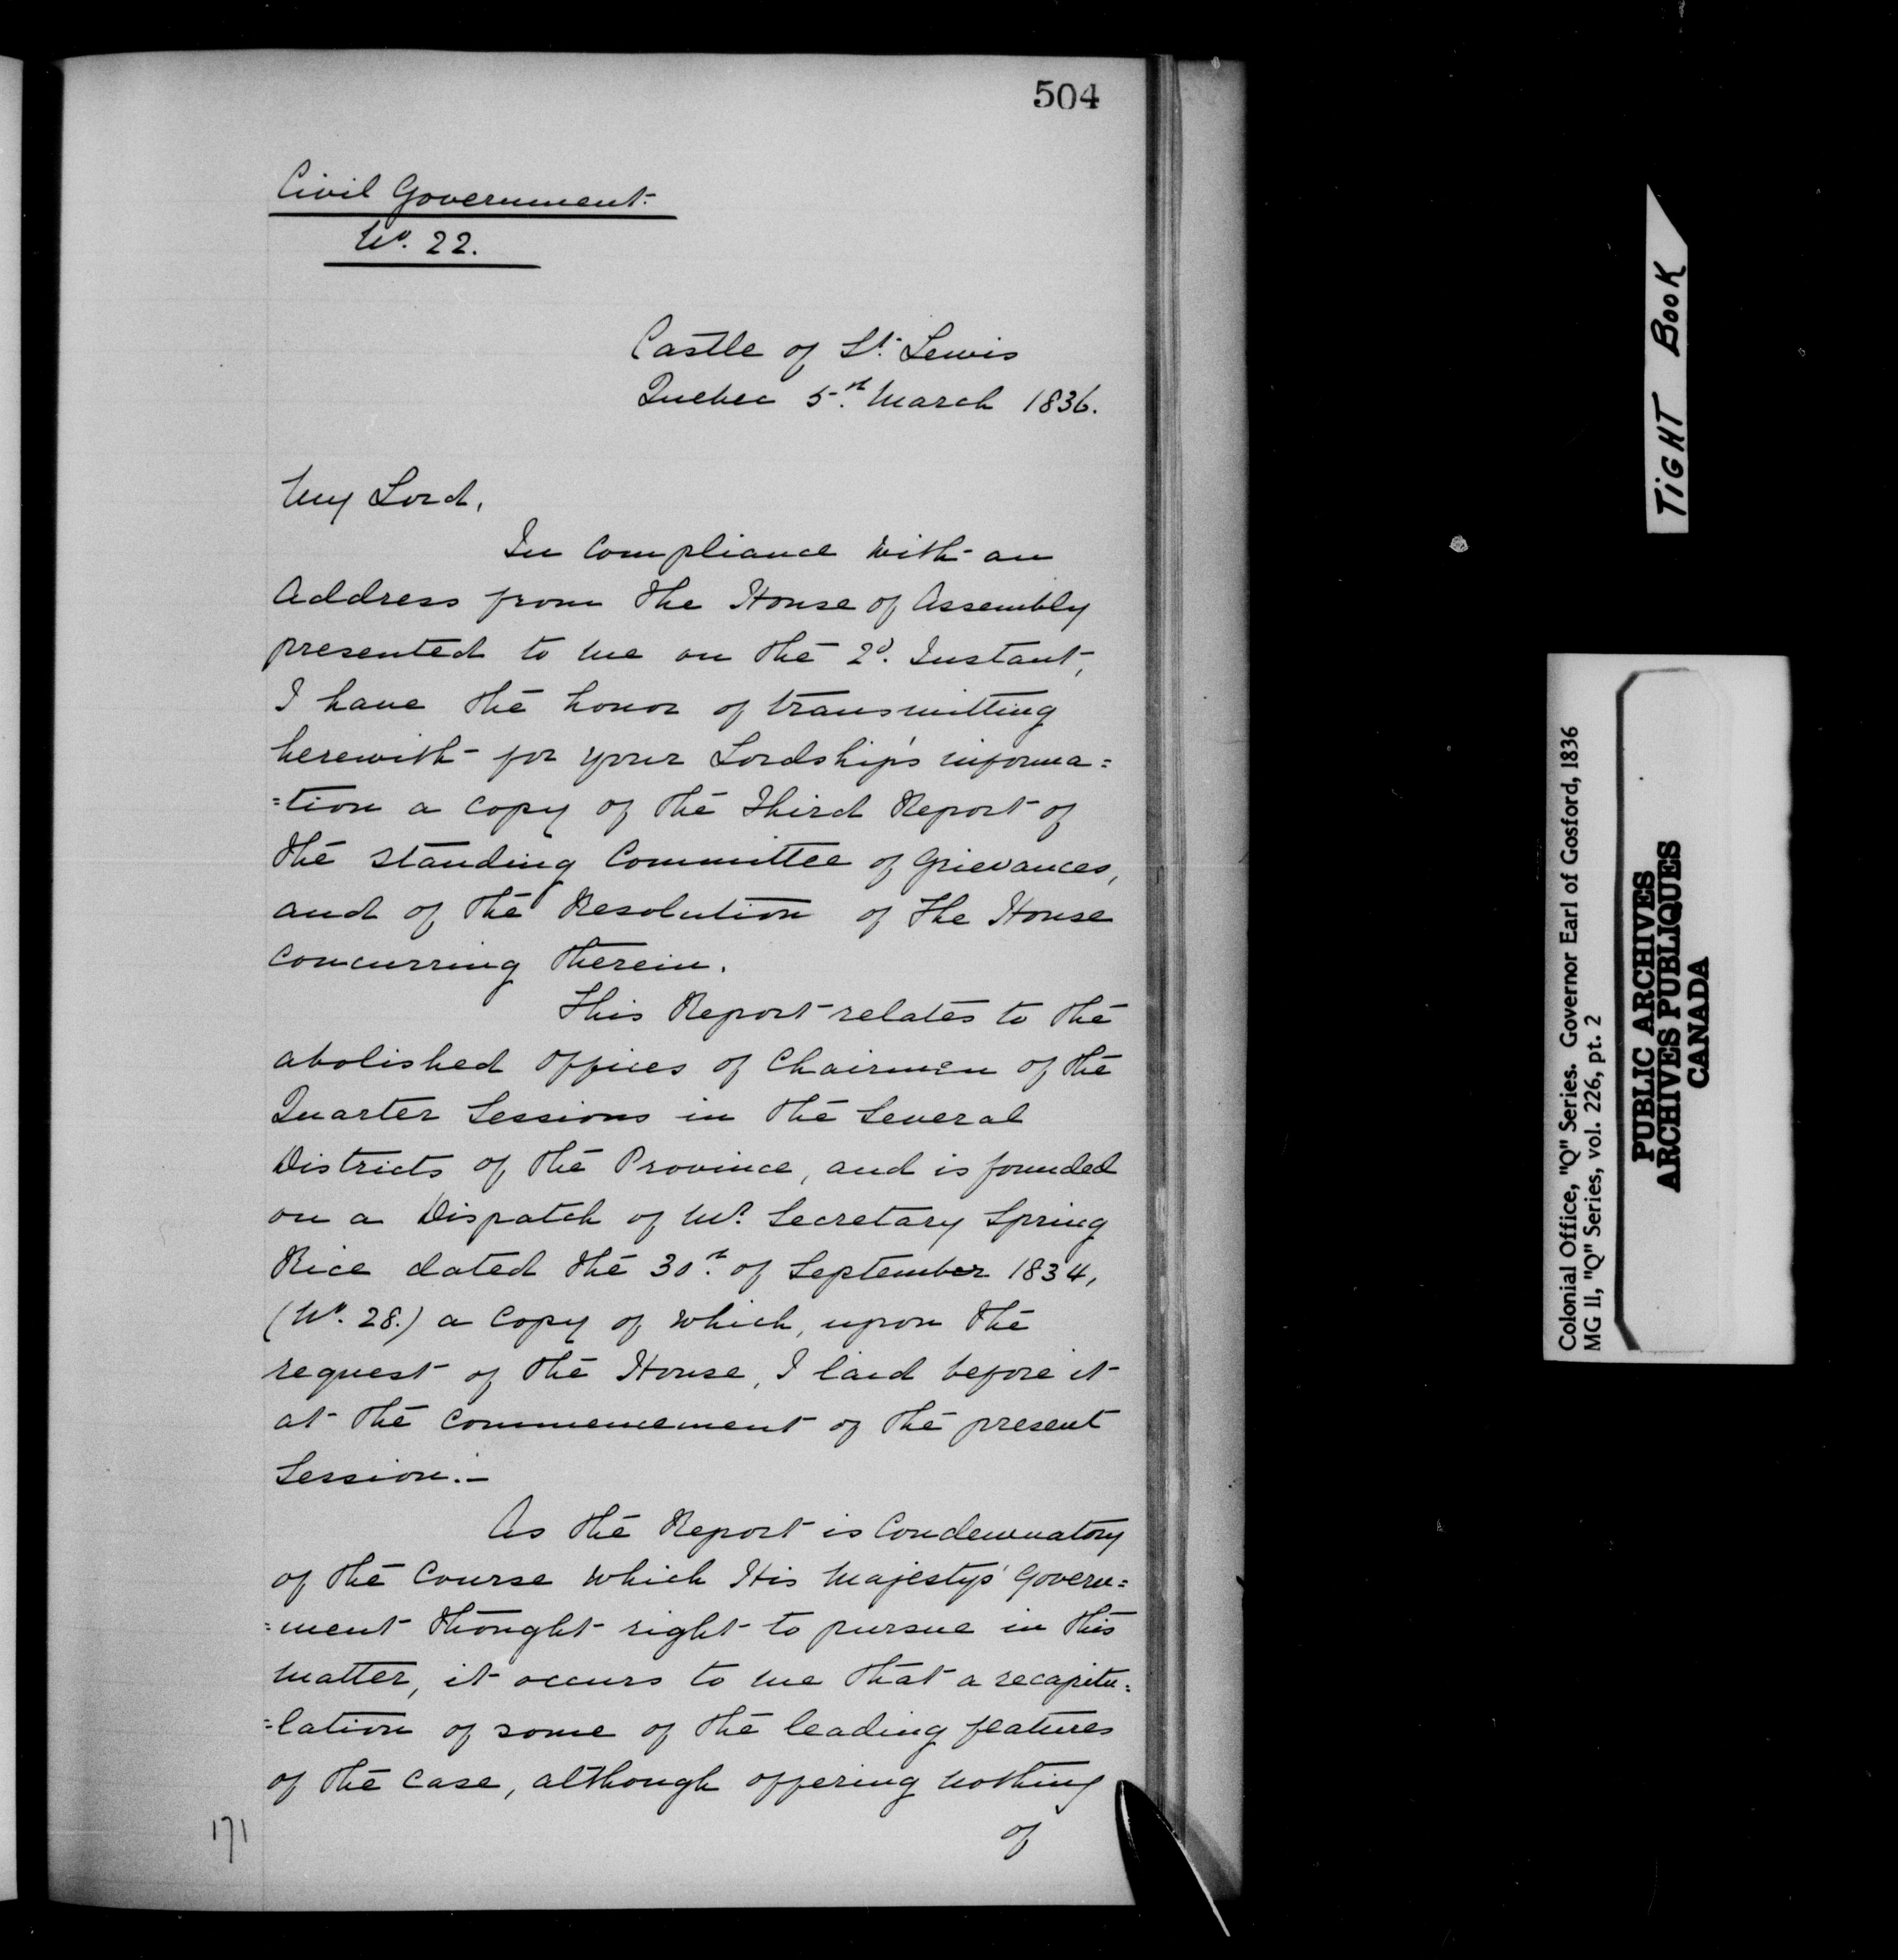 504
Civil Government.
No. 22.
Castle of St. Lewis
Quebec 5th. March 1836.
My Lord,
In Compliance with an
Address from the House of Assembly
presented to me on the 2d. Instant,
I have the honor of transmitting
herewith for your Lordship's informa=
=tion a Copy of the Third Report of
the standing Committee of Grievances,
and of the Resolution of the House
Concurring therein.
This Report relates to the
abolished Offices of Chairmen of the
Quarter Sessions in the Several
Districts of the Province, and is founded
on a Dispatch of Mr. Secretary Spring
Rice dated the 30th. of September 1834,
(No. 28.) a Copy of which, upon the
request of the House, I laid before it
at the Commencement of the present
Session.—
As the Report is Condemnatory
of the Course which His Majestys' Govern=
=ment thought right to pursue in this
Matter, it occurs to me that a recapitu=
=lation of some of the leading features
of the Case, although offering nothing
of
171
TiGHT BOOK
Colonial Office, "Q" Series. Governor Earl of Gosford, 1836
MG 11, "Q" Series, vol. 226, pt. 2
PUBLIC ARCHIVES
ARCHIVES PUBLIQUES
CANADA